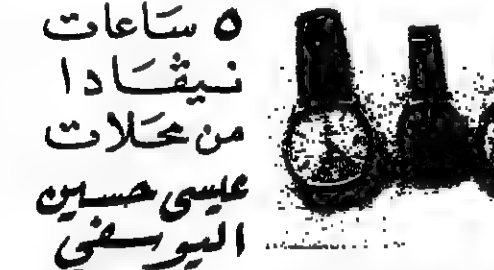 ٥ ساعات
نيڤادا
من محلات
عيسى حسين
اليوسفي